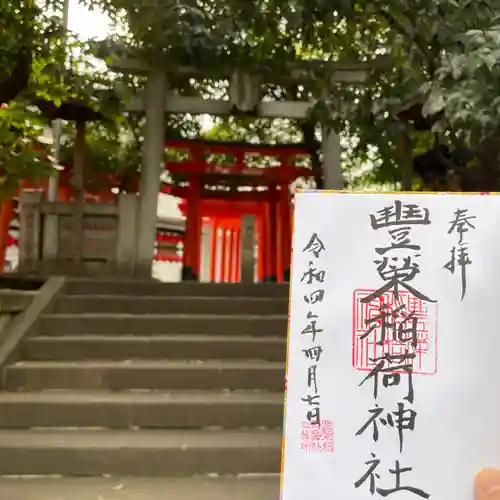 奉拝
豐榮稲荷神社
令和四年四月七日